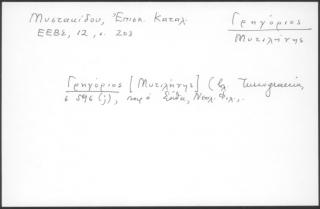 Μυστακίδου, Ἐπισκ. Καταλ.
ΕΕΒΣ, 12, σ. 203
Γρηγόριος
Μυτιλήνης
Γρηγόριος [Μυτιλήνης] (βλ.
σ 596 (j), παρὰ Σάθα, Νεοελ. Φιλ.,